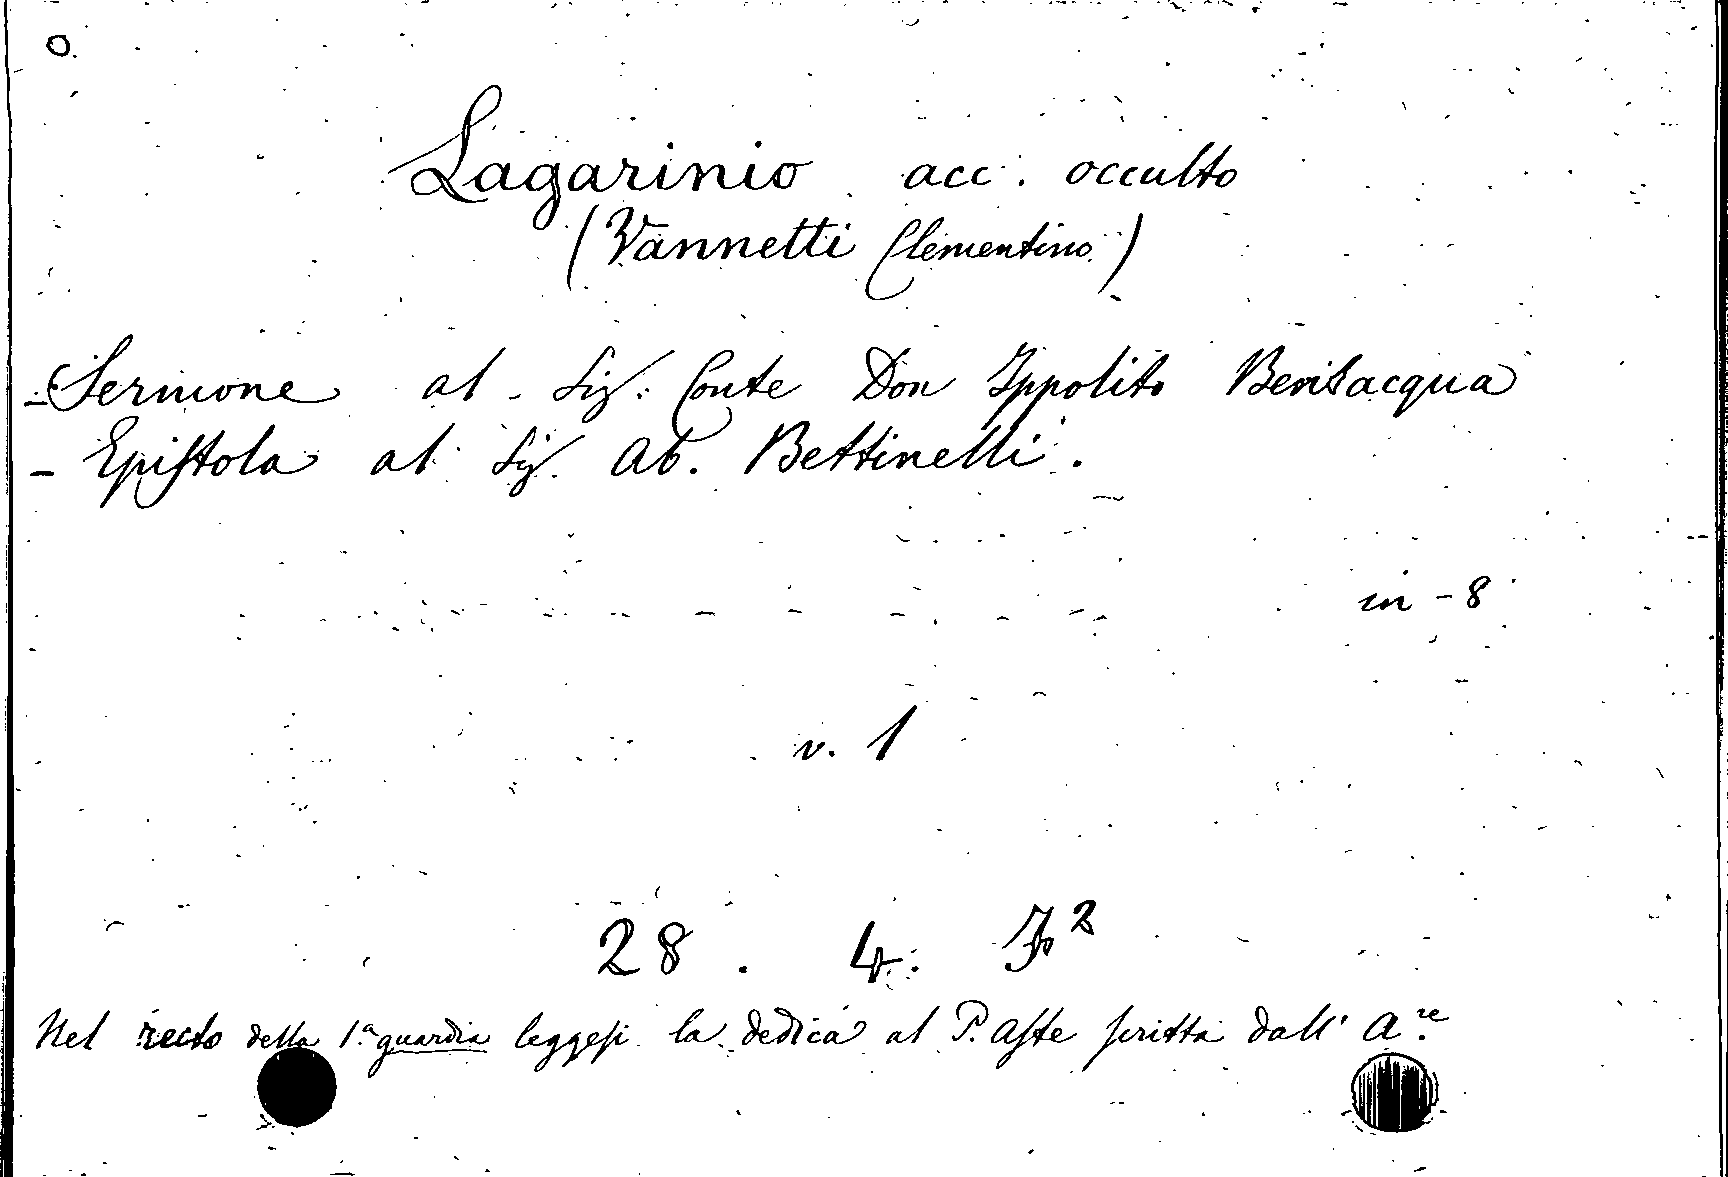 Lagarinio acc. occulto
(Vannetti Clementino)
- Sermone al Sig. Conte Don Ippolito Bevilacqua
- Epistola al Sig. Ab. Bettinelli.
in - 8
v. 1
28. 4.
Nel recto della 1.ª guardia leggesi la dedica al P. Aste scritta dall' A.re